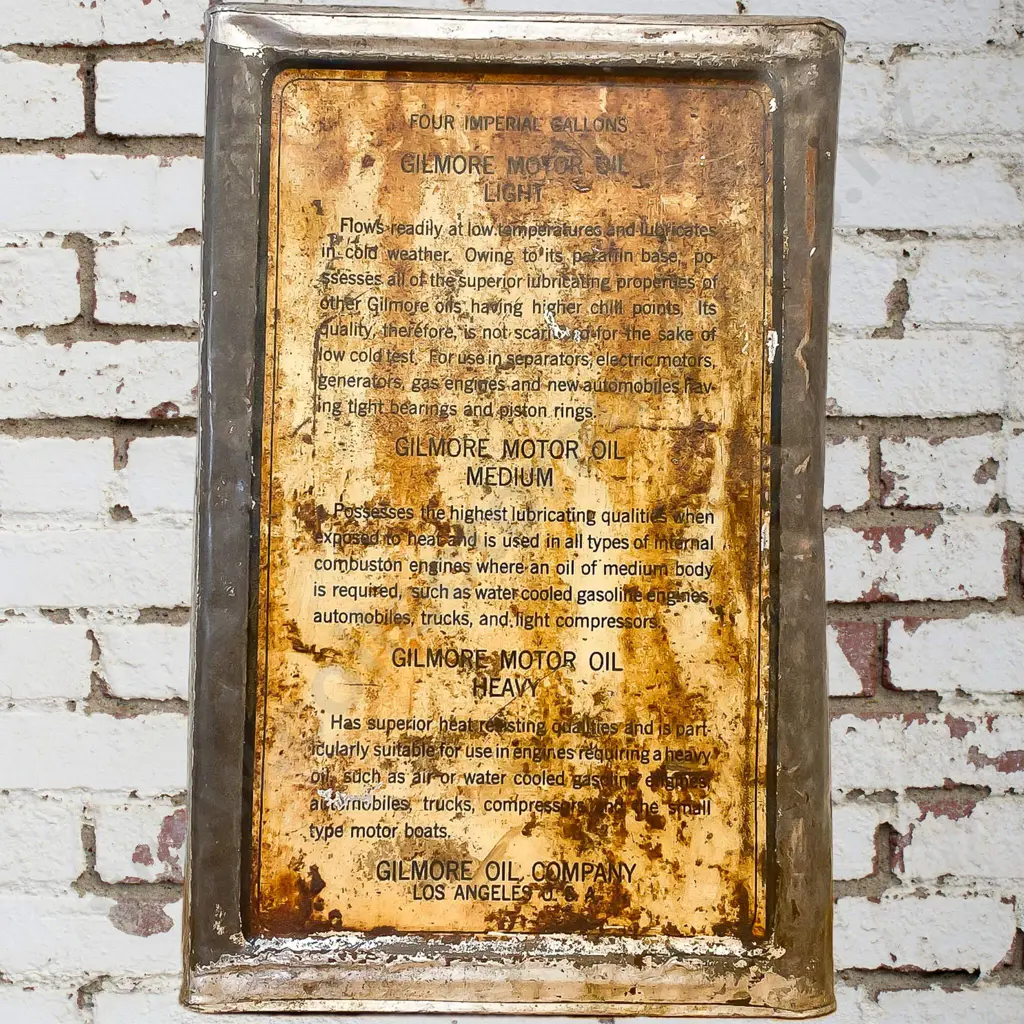 FOUR IMPERIAL GALLONS
GILMORE MOTOR OIL
LIGHT
Flows readily at low temperatures and lubricates
in cold weather. Owing to its paraffin base, po-
ssesses all of the superior lubricating properties of
other Gilmore oils having higher chill points. Its
quality, therefore, is not for the sake of
low cold test. For use in separators, electric motors,
generators, gas engines and new automobiles hav-
ing tight bearings and piston rings.
GILMORE MOTOR OIL
MEDIUM
Possesses the highest lubricating qualities when
exposed to heat and is used in all types of internal
combuston engines where an oil of medium body
is required, such as water cooled gasoline engines,
automobiles, trucks, and light compressors.
GILMORE MOTOR OIL
HEAVY
Has superior heat resisting qualities and is part-
icularly suitable for use in engines requiring a heavy
oil, such as air or water cooled gasoline engines,
automobiles, trucks, compressors and the small
type motor boats.
GILMORE OIL COMPANY
LOS ANGELES U. S. A.